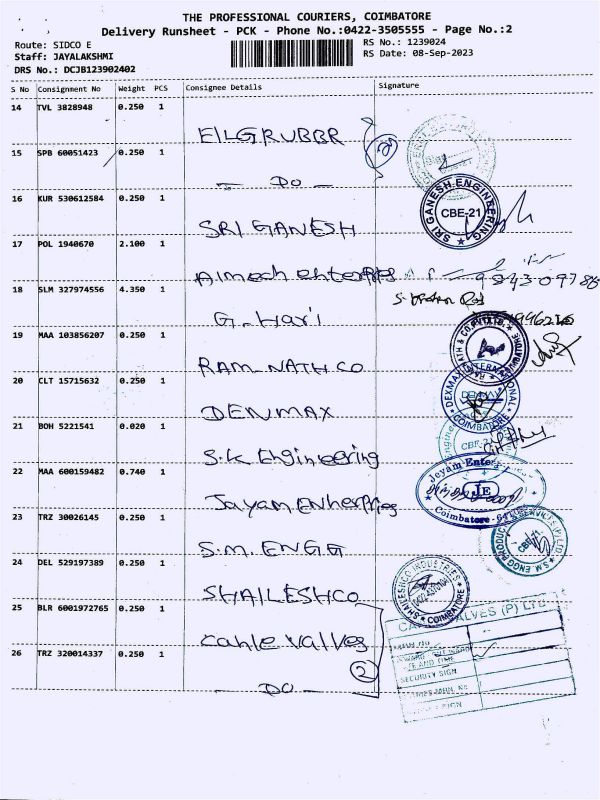 THE PROFESSIONAL COURIERS, COIMBATORE
Delivery Runsheet - PCK - Phone No.:0422-3505555 - Page No.:2
Route: SIDCO E
Staff: JAYALAKSHMI
DRS No.: DCJB123902402
RS No.: 1239024
RS Date: 08-Sep-2023
S No Consignment No Weight PCS Consignee Details Signature
14 TVL 3828948 0.250 1
EILGRUBBR
15 SPB 60051423 0.250 1
- DO -
16 KUR 530612584 0.250 1
SRI GANESH
SRI GANESH ENGINEERING
CBE-21
17 POL 1940670 2.100 1
Aimech enterpries
18 SLM 327974556 4.350 1
G. Hari
19 MAA 103856207 0.250 1
RAM NATH CO
20 CLT 15715632 0.250 1
DENMAX
DEXMAX INTERNATIONAL
COIMBATORE
21 BOH 5221541 0.020 1
S.K Engineering
CBE-21
22 MAA 600159482 0.740 1
Jayam Enherpries
Jeyam Enter
JE
Coimbatore - 641
23 TRZ 30026145 0.250 1
S.M. ENGG
S.M. ENGG PRODUCTS
24 DEL 529197389 0.250 1
SHAILESHCO
SHAILESHCO INDUSTRIES
COIMBATORE
25 BLR 6001972765 0.250 1
Cahle valves
VALVES (P) LTD
26 TRZ 320014337 0.250 1
- DO -
2
SECURITY SIGN